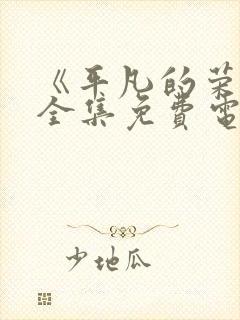 《平凡的荣
全集免費電
少地瓜